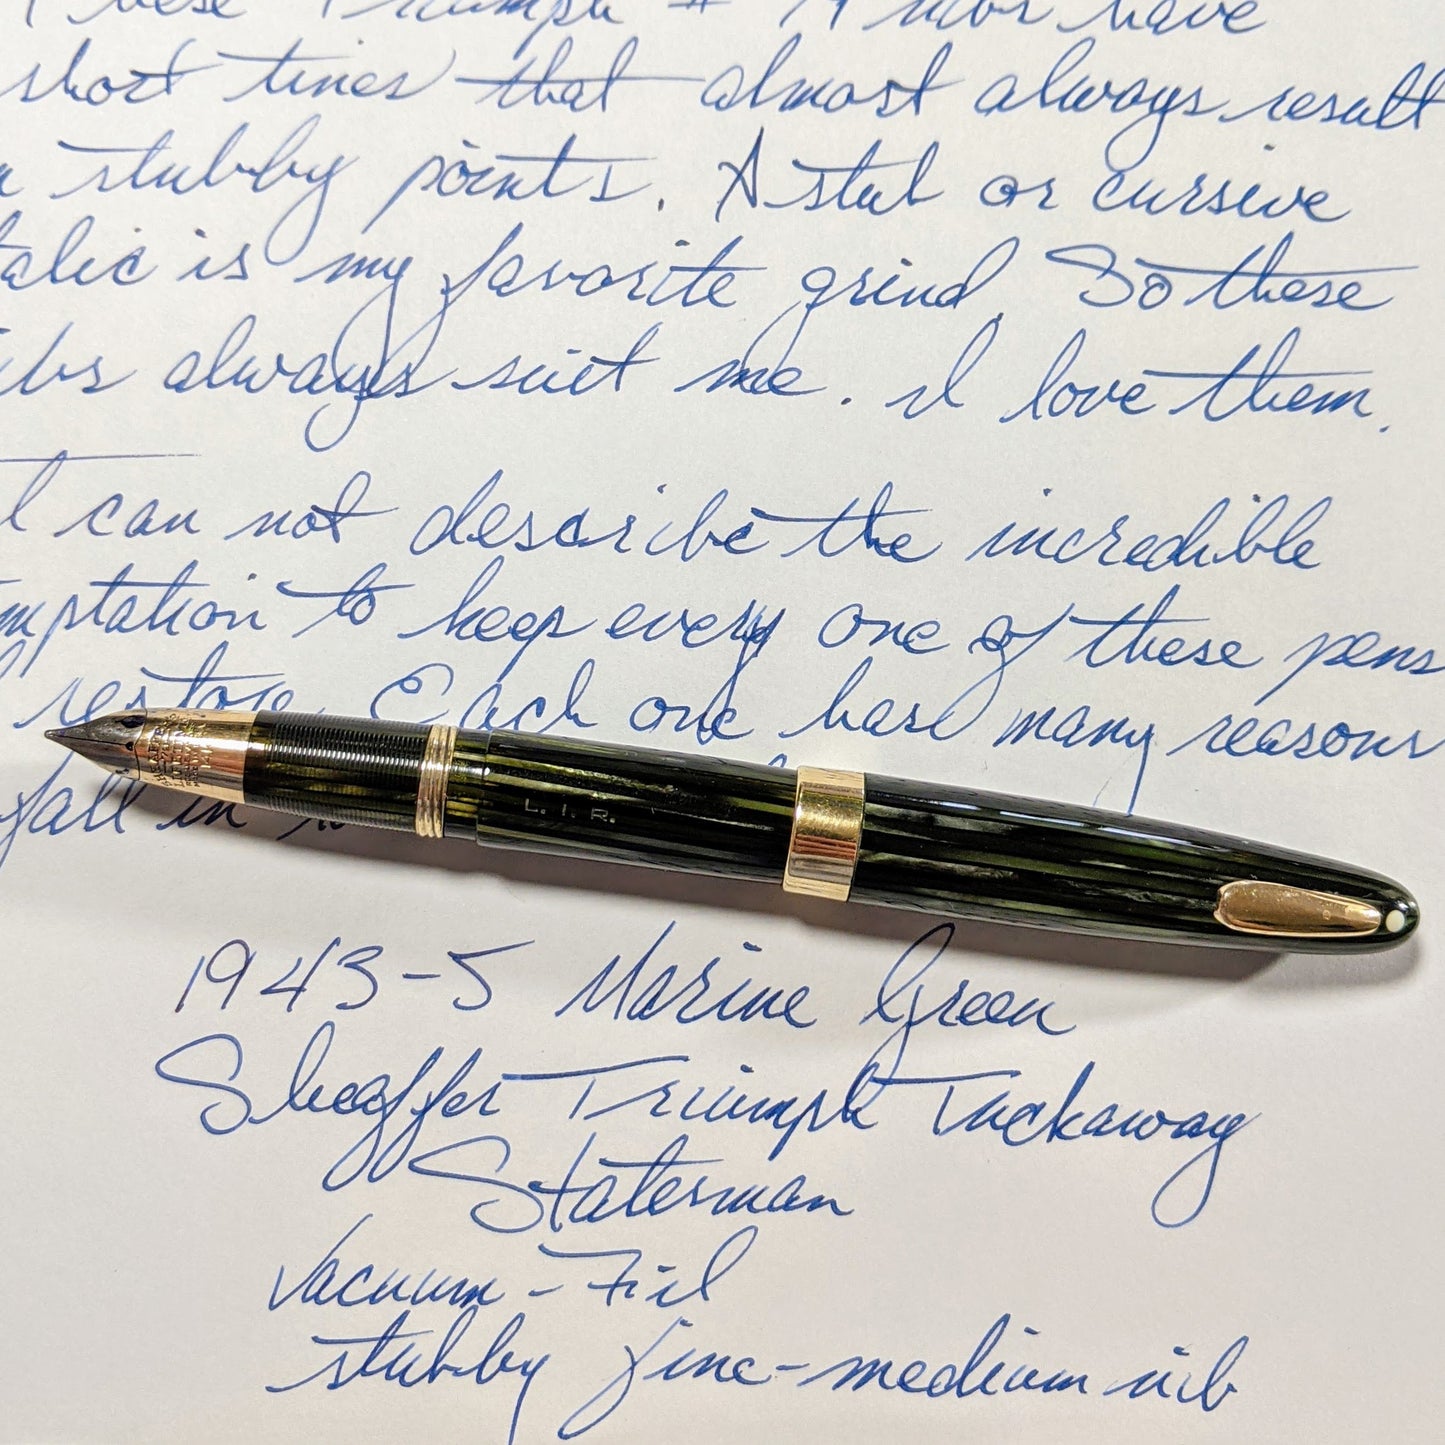 These Triumph # 14 nibs have
short tines that almost always result
stubby points. A stub or cursive
talic is my favorite grind. So these
ibs always suit me. I love them.
I can not describe the incredible
mptation to keep every one of these pens
I restore. Each one has many reasons
fall in
L.I.R.
1943-5 Marine Green
Sheaffer Triumph Tuckaway
Statesman
Vacuum-Fil
stubby fine-medium nib